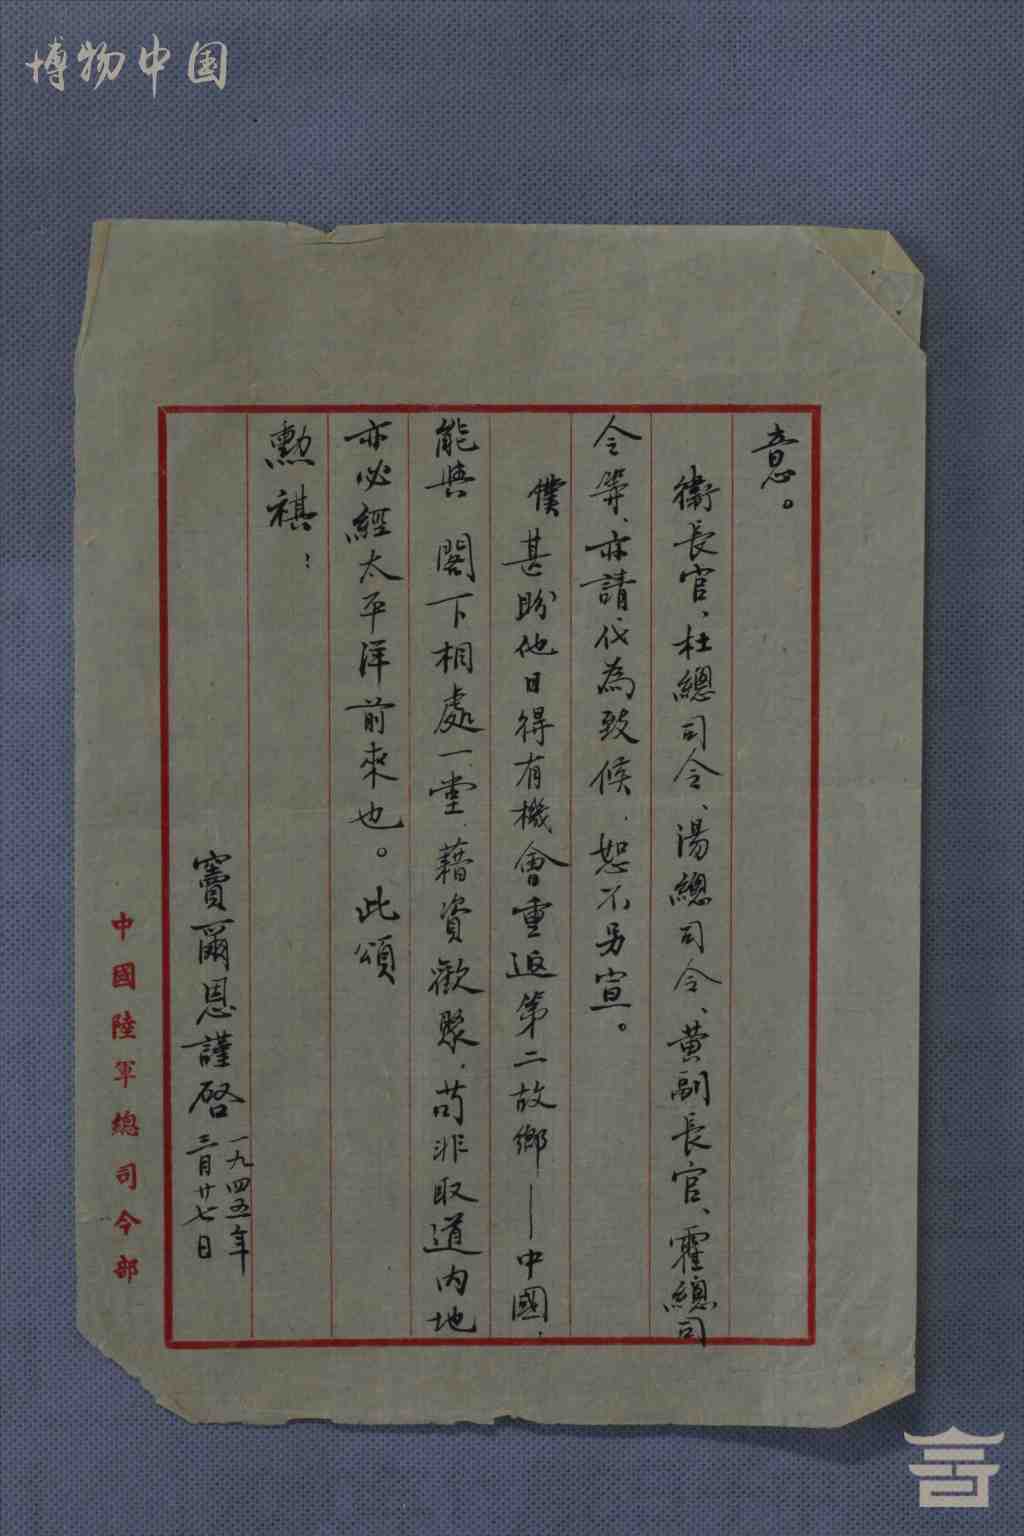 博物中国
意。
衛長官、杜總司令、湯總司令、黄副長官、霍總司
令等、亦請代為致候、恕不另宣。
僕甚盼他日得有機會重返第二故鄉——中國，
能與 閣下相處一堂，藉資歡聚，苟非取道內地
亦必經太平洋前來也。此頌
勳祺：
竇爾恩謹啓 一九四五年
三月廿七日
中國陸軍總司令部